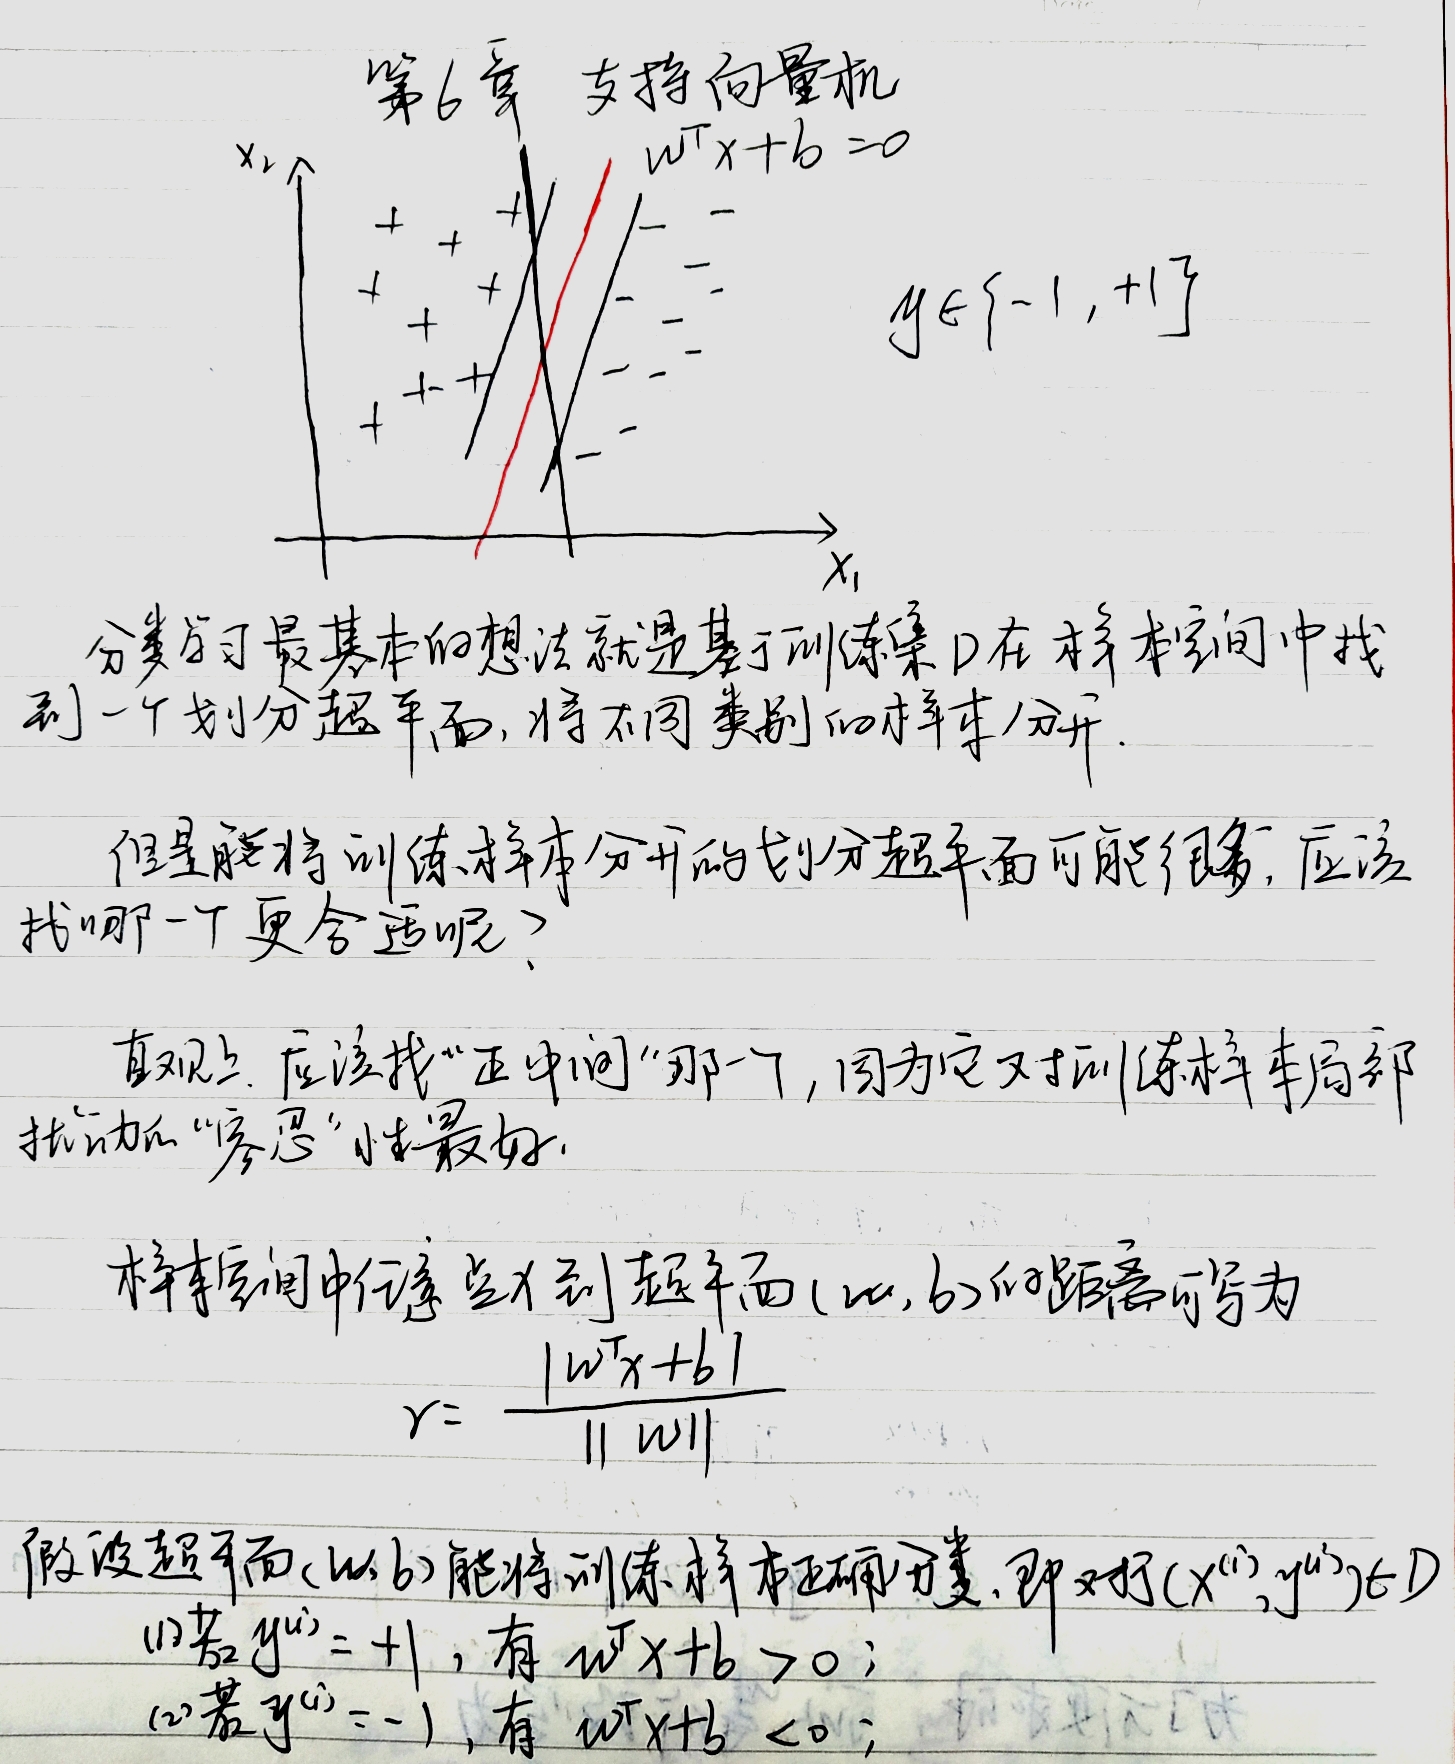 第6章 支持向量机
w^T x+b=0
x₂
y∈{-1,+1}
x₁
分类学习最基本的想法就是基于训练集D在样本空间中找
到一个划分超平面,将不同类别的样本分开.
但是能将训练样本分开的划分超平面可能很多,应该
找哪一个更合适呢?
直观上.应该找“正中间”那一个,因为它对训练样本局部
扰动的“容忍”性最好.
样本空间中任意点x到超平面(w,b)的距离可写为
r= |w^T x+b| / ||w||
假设超平面(w,b)能将训练样本正确分类.即对于(x^(i),y^(i))∈D
(1)若y^(i)=+1,有 w^T x+b>0;
(2)若y^(i)=-1,有 w^T x+b<0;